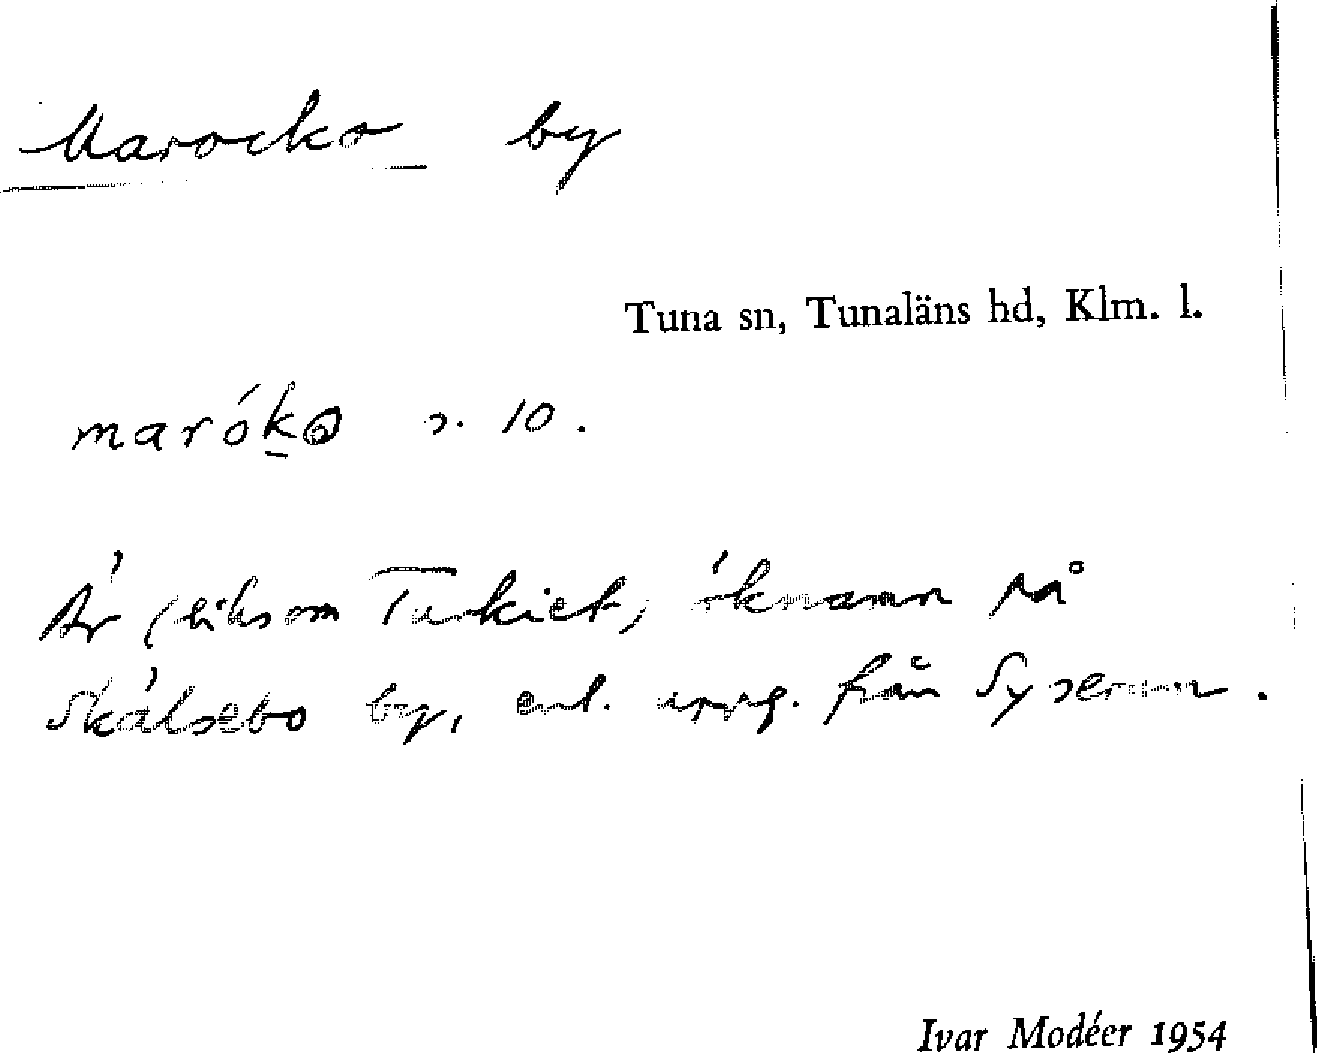 Marocko by
Tuna sn, Tunaläns hd, Klm. l.
maróko s. 10.
Är (liksom Turkiet) öknamn på
Skálsebo by, enl. uppg. från Syserum.
Ivar Modéer 1954